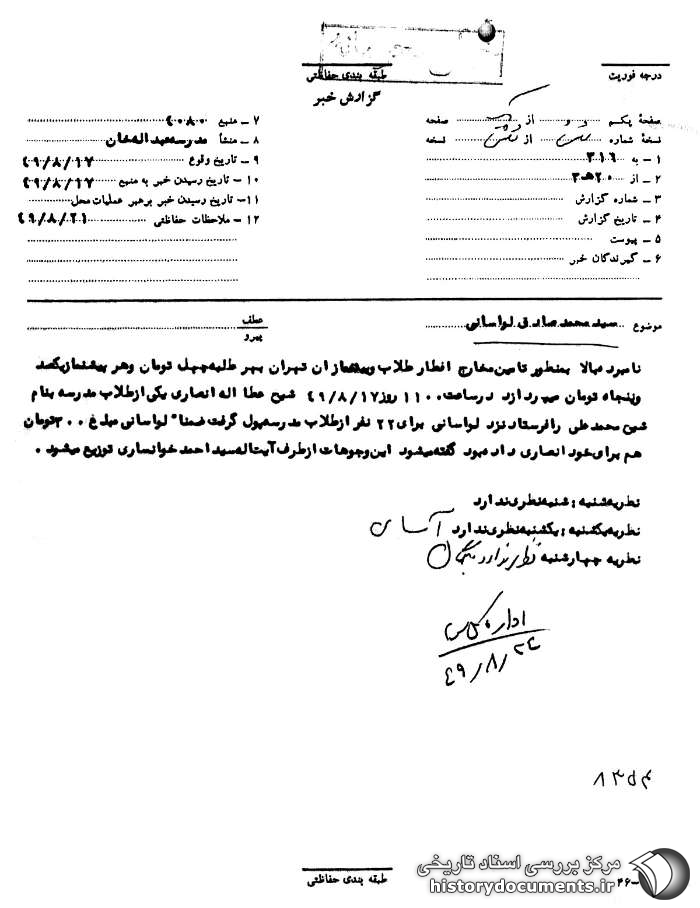 درجه فوریت
طبقه بندی حفاظتی
گزارش خبر
صفحهٔ یکم از صفحه
نسخهٔ شماره از نسخه
۱ – به ۳۱۶
۲ – از ۲۰هـ۳
۳ – شماره گزارش
۴ – تاریخ گزارش
۵ – پیوست
۶ – گیرندگان خبر
۷ – منبع ۴۰۰۸۰
۸ – منشأ مدرسه عبداله خان
۹ – تاریخ وقوع ۴۹/۸/۱۷
۱۰ – تاریخ رسیدن خبر به منبع ۴۹/۸/۱۷
۱۱– تاریخ رسیدن خبر برهبر عملیات محل
۱۲ – ملاحظات حفاظتی ۴۹/۸/۲۱
موضوع سید محمد صادق لواسانی
عطف
پیرو
نامبرده بالا بمنظور تامین مخارج افطار طلاب وپیشنمازان تهران بهر طلبه چهل تومان وهر پیشنماز یکصد
وپنجاه تومان میپردازد درساعت ۱۱۰۰ روز ۴۹/۸/۱۷ شیخ عطا اله انصاری یکی ازطلاب مدرسه بنام
شیخ محمد علی رافرستاد نزد لواسانی برای ۲۲ نفر ازطلاب مدرسه پول گرفت ضمناً لواسانی مبلغ ۳۰۰تومان
هم برای خود انصاری داده بود گفته میشود این وجوهات ازطرف آیت اله سید احمد خوانساری توزیع میشود .
نظریه شنبه : شنبه نظری ندارد
نظریه یکشنبه : یکشنبه نظری ندارد آسای
نظریه چهارشنبه نظری ندارد
اداره کل سوم
۴۹/۸/۲۴
۸۳۵۴
طبقه بندی حفاظتی
۴۶–
مرکز بررسی اسناد تاریخی
historydocuments.ir